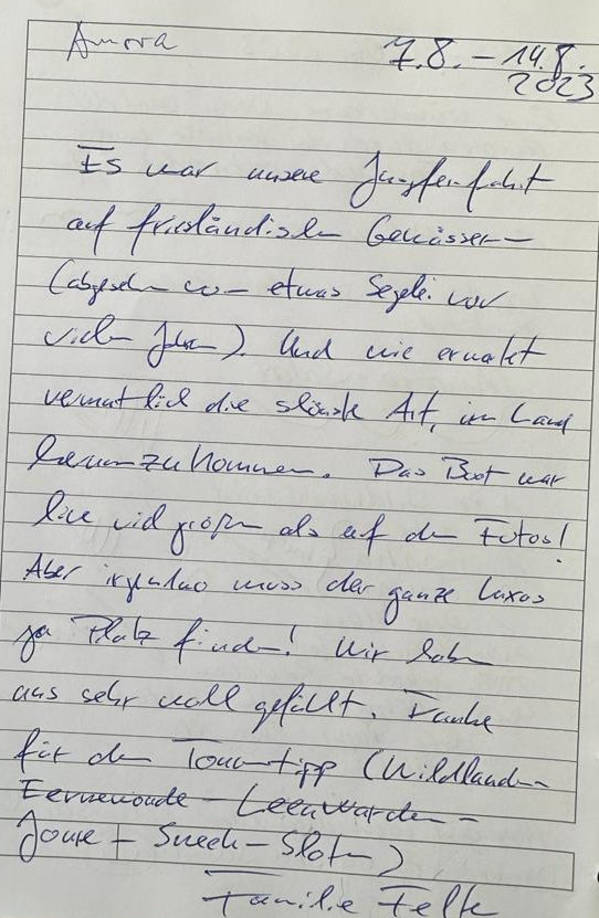 Amora 7.8. – 14.8.
2023
Es war unsere Jungfernfahrt
auf friesländischen Gewässern –
(abgesehen von etwas Segelei vor
vielen Jahren). Und wie erwartet
vermutlich die schönste Art, im Land
herumzukommen. Das Boot war
live viel größer als auf den Fotos!
Aber irgendwo muss der ganze Luxus
ja Platz finden! Wir haben
uns sehr wohl gefühlt. Danke
für den Tourentipp (Wildlanden –
Eernewoude – Leeuwarden –
Joure – Sneek – Sloten)
Familie